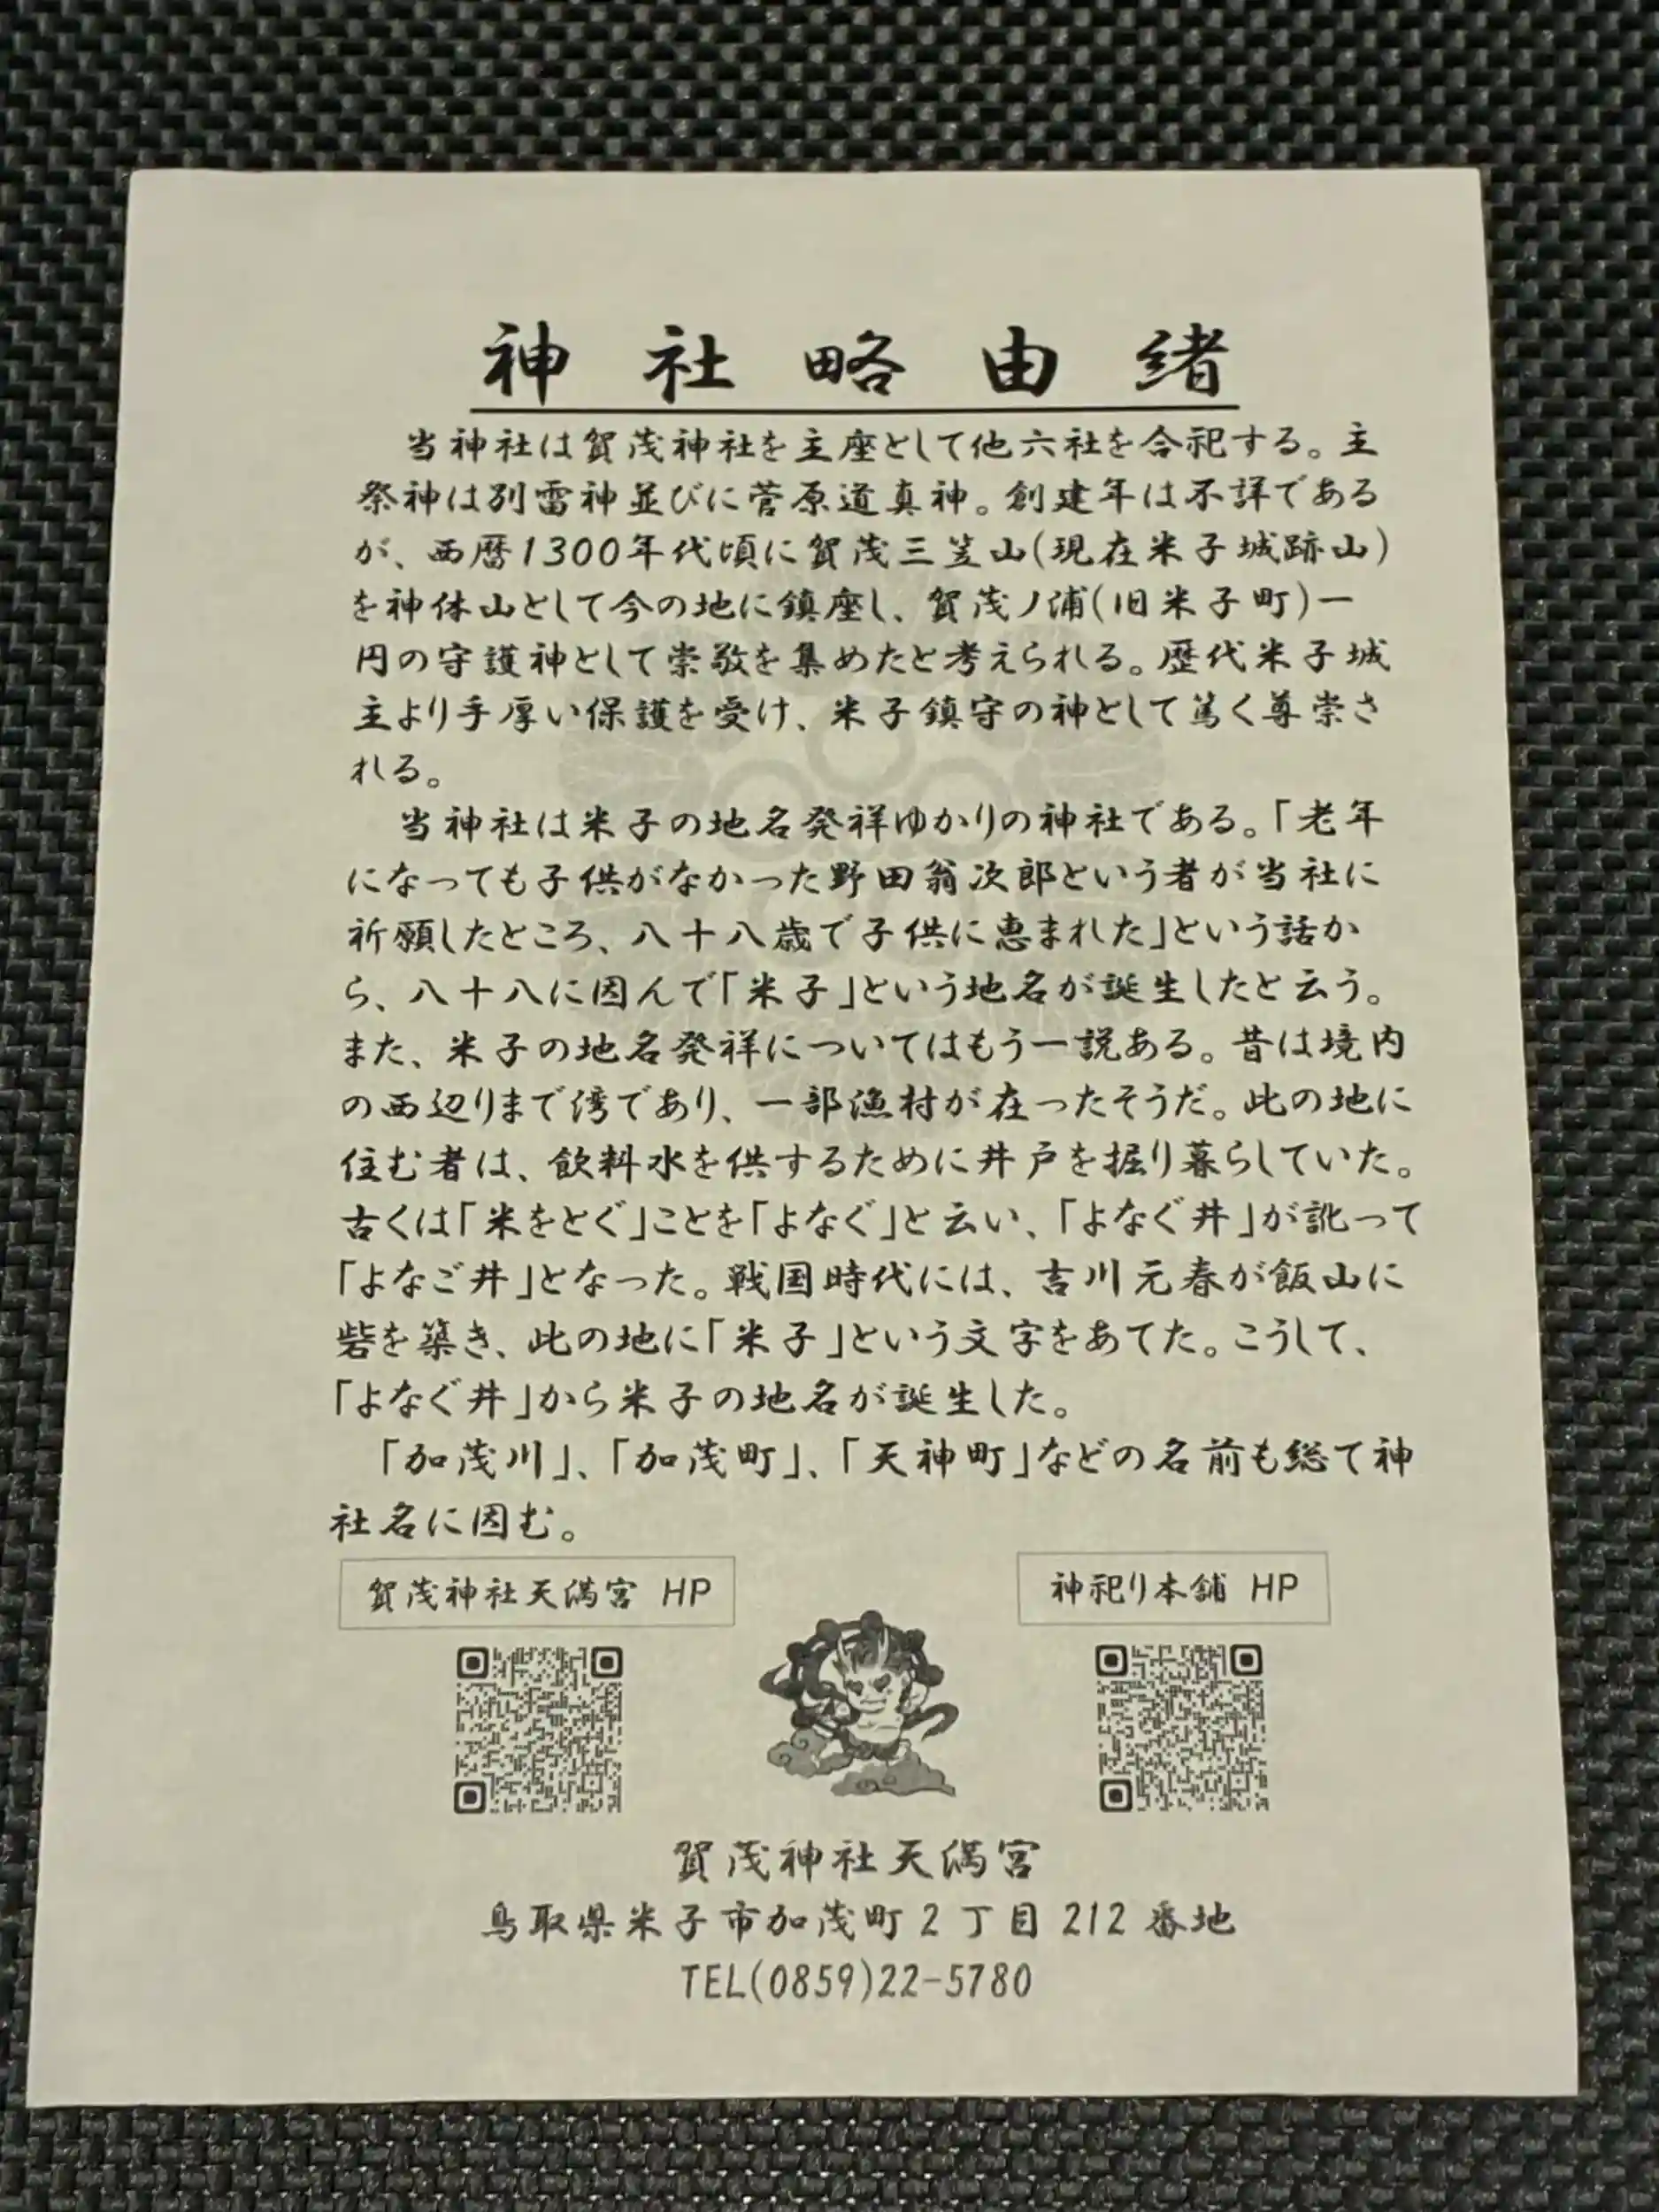 神社略由緒
当神社は賀茂神社を主座として他六社を合祀する。主
祭神は別雷神並びに菅原道真神。創建年は不詳である
が、西暦1300年代頃に賀茂三笠山(現在米子城跡山)
を神体山として今の地に鎮座し、賀茂ノ浦(旧米子町)一
円の守護神として崇敬を集めたと考えられる。歴代米子城
主より手厚い保護を受け、米子鎮守の神として篤く尊崇さ
れる。
当神社は米子の地名発祥ゆかりの神社である。「老年
になっても子供がなかった野田翁次郎という者が当社に
祈願したところ、八十八歳で子供に恵まれた」という話か
ら、八十八に因んで「米子」という地名が誕生したと云う。
また、米子の地名発祥についてはもう一説ある。昔は境内
の西辺りまで湾であり、一部漁村が在ったそうだ。此の地に
住む者は、飲料水を供するために井戸を掘り暮らしていた。
古くは「米をとぐ」ことを「よなぐ」と云い、「よなぐ井」が訛って
「よなご井」となった。戦国時代には、吉川元春が飯山に
砦を築き、此の地に「米子」という文字をあてた。こうして、
「よなぐ井」から米子の地名が誕生した。
「加茂川」、「加茂町」、「天神町」などの名前も総て神
社名に因む。
賀茂神社天満宮 HP
神祀り本舗 HP
賀茂神社天満宮
鳥取県米子市加茂町2丁目212番地
TEL(0859)22-5780